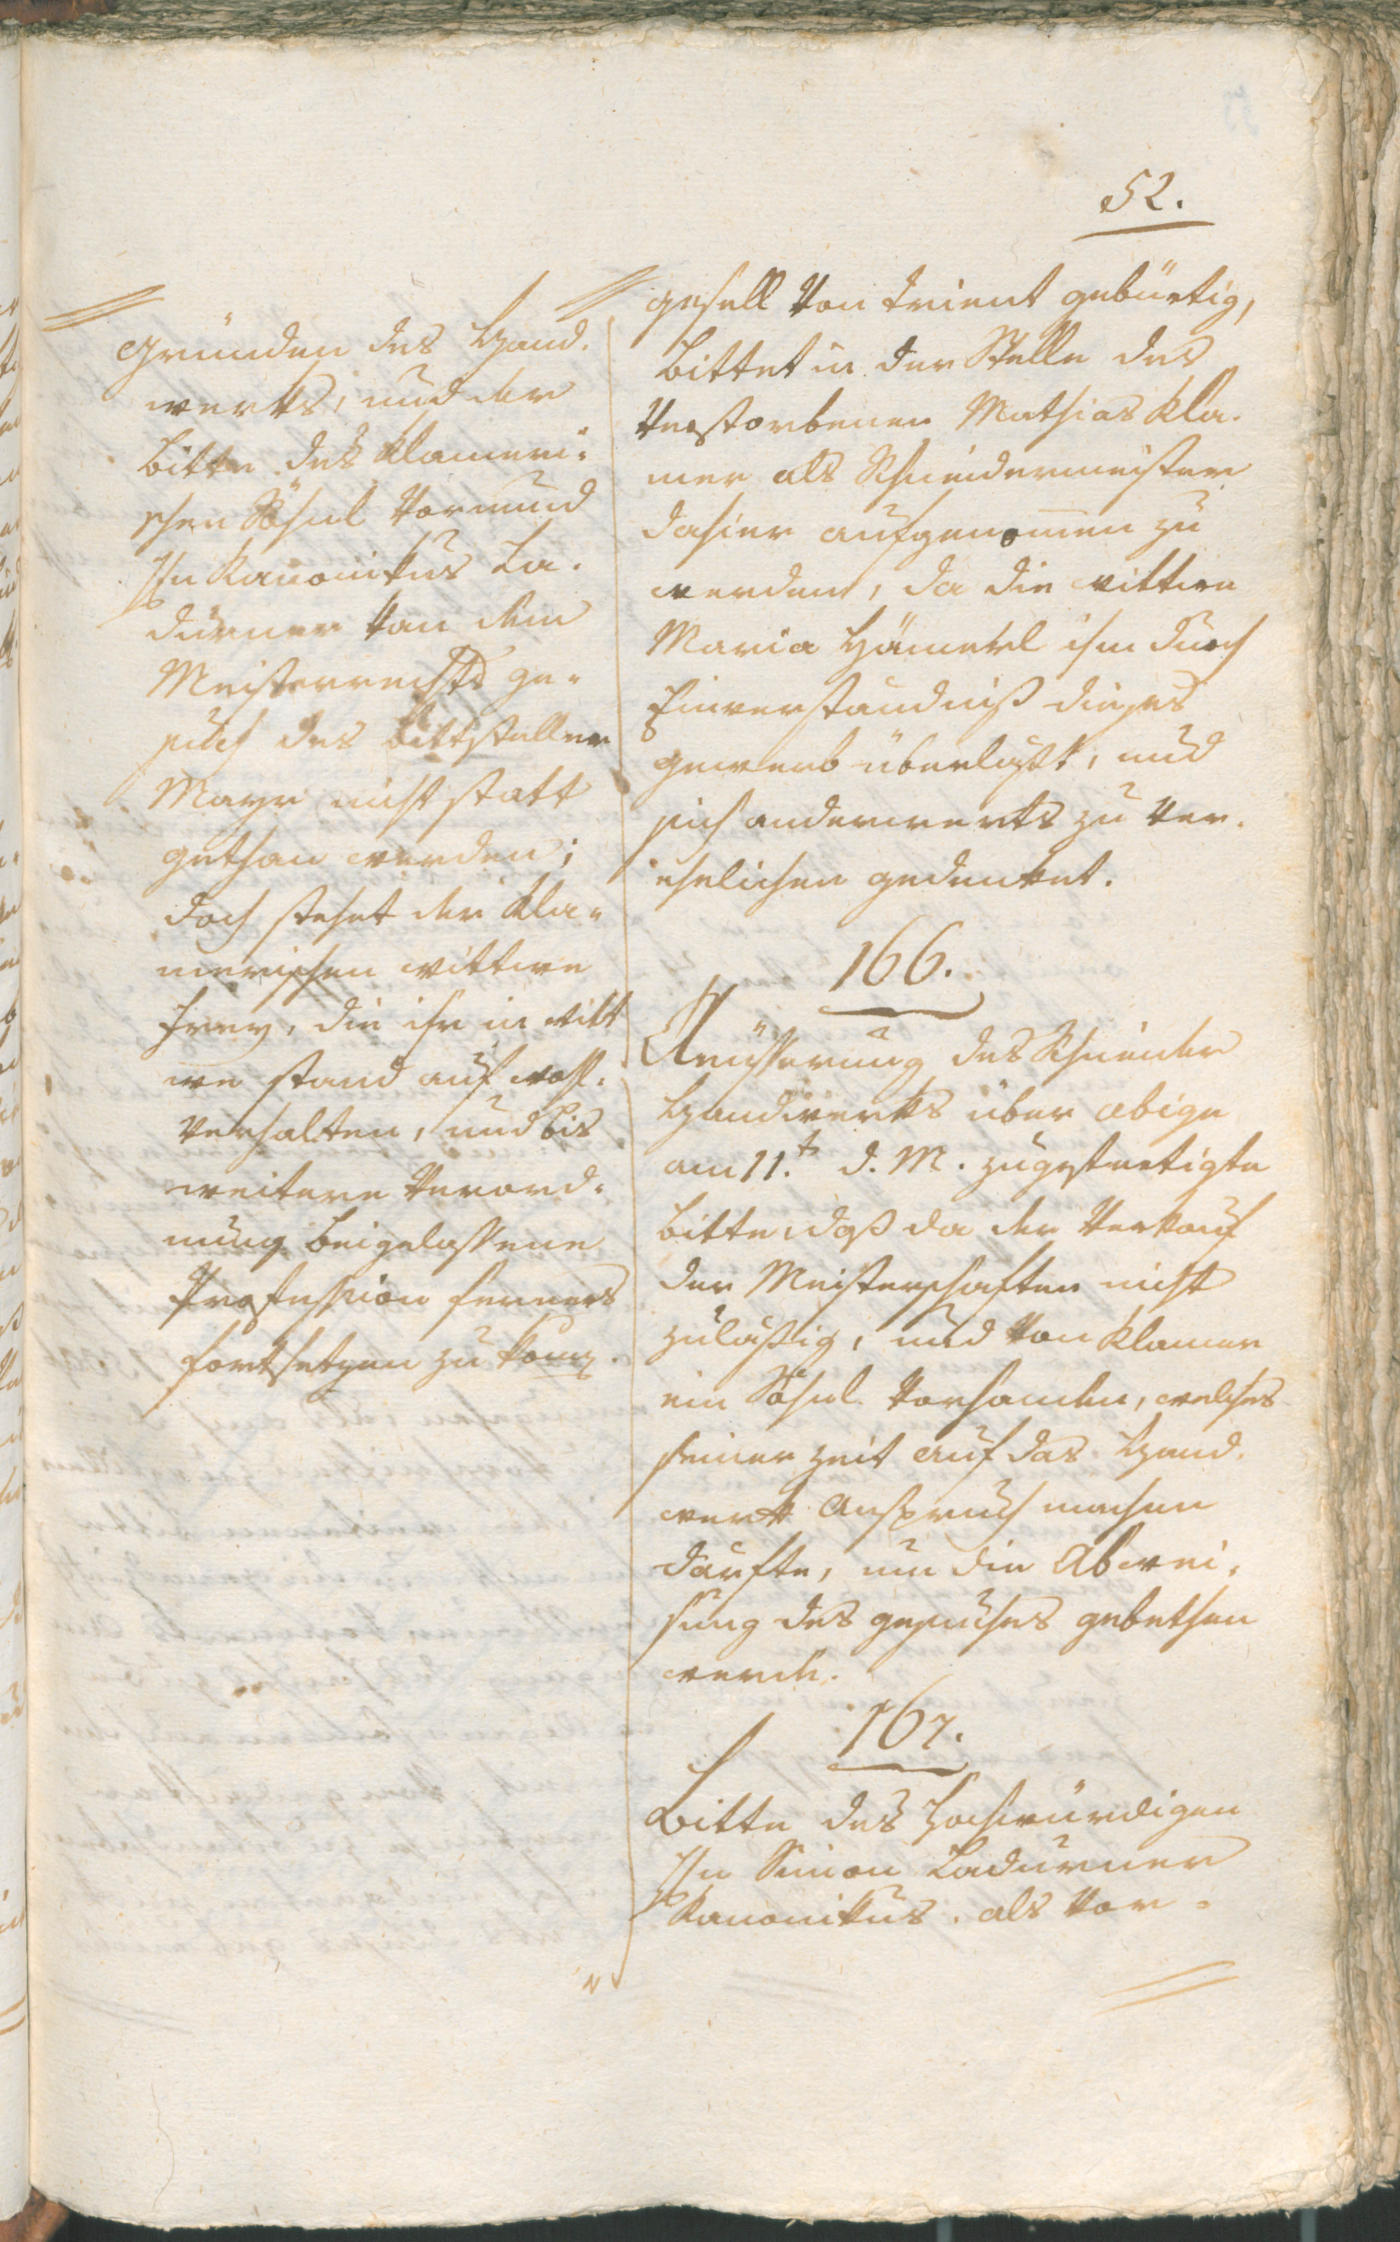 52.
Gründen des Hand¬
werks, und der
bitte des klameri¬
schen Söhnl Vormund
Hn Kanonikus La¬
durner kan dem
Meisterrechts ge¬
such des bittsteller
Mayr nicht statt
gethan werden;
doch stehet der Kla¬
merischen wittwe
frey, die ihr in witt
we stand auf wohl¬
verhalten, und bis
weitere Verord¬
nung beigelassene
Profession ferners
fortsetzen zu könn̅.
gesell von Trient gebürtig,
bittet in der Stelle des
verstorbenen Mathias Kla¬
mer als Schneidermeister
dahier aufgenom̅en zu
werden, da die wittwe
Maria Hämerl ihm durch
Einverständniß dieses
gewerb überlaßt, und
sich anderwerts zu ver¬
ehelichen gedenket.
166.
Aeusserung des Schneider
Handwerks über obige
am 11.t d. M. zugestertigte
bitte, daß da der Verkauf
der Meisterschaften nicht
zuläßig, und von Klamer
ein Söhnl vorhanden, welches
seiner Zeit auf das Hand¬
werk Anspruch machen
därfte, um die Abwei¬
sung des gesuches gebethen
werde.
167.
Bitte des Hochwürdigen
Hn Simon Ladurner
Kanonikus. als Vor¬